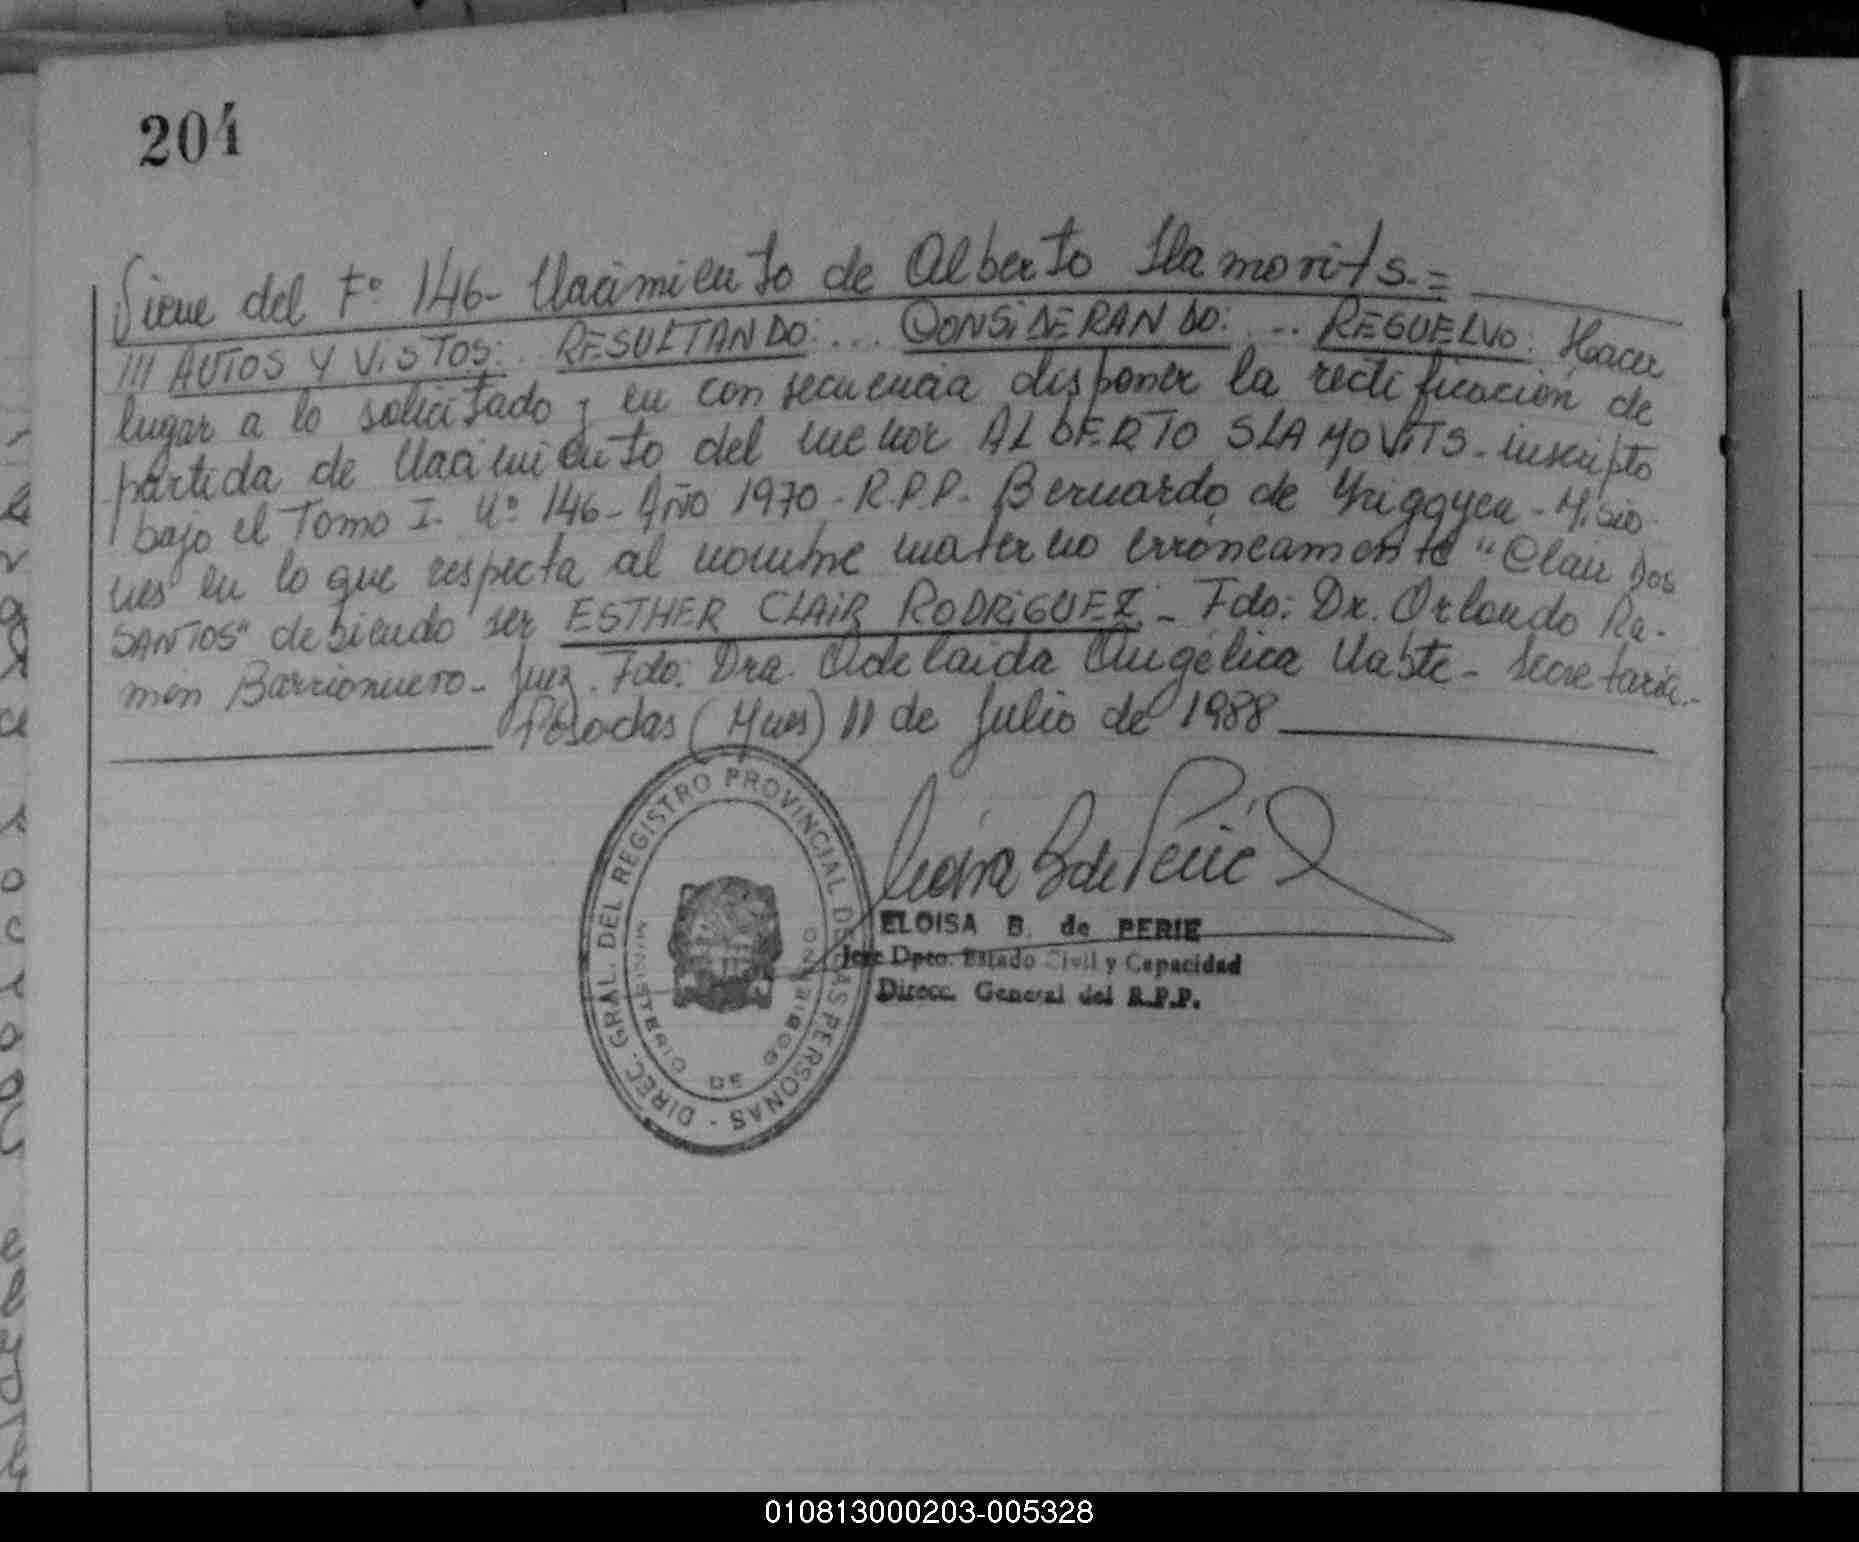 204
Viene del Fº 146- Nacimiento de Alberto Slamovits.=
/// AUTOS Y ViSTOS: RESULTANDO: ... CONSiDERANDO: ... RESUELVO: Hacer
lugar a lo solicitado y en consecuencia disponer la rectificación de
partida de Nacimiento del menor ALBERTO SLAMOViTS- inscripto
bajo el Tomo I- Nº 146- Año 1970- R.P.P. Bernardo de Yrigoyen- Misio-
nes en lo que respecta al nombre materno erróneamente "Clair Dos
SANTOS" debiendo ser ESTHER CLAiR RODRiGUEZ.- Fdo: Dr. Orlando Ra-
món Barrionuevo- Juez. Fdo: Dra. Adelaida Angélica - Secretaria.-
Posadas (Mnes) 11 de Julio de 1988
DIREC. GRAL. DEL REGISTRO PROVINCIAL DE LAS PERSONAS -
MINISTERIO DE GOBIERNO
ELOISA B. de PERIE
Jefe Dpto. Estado Civil y Capacidad
Direcc. General del R.P.P.
010813000203-005328